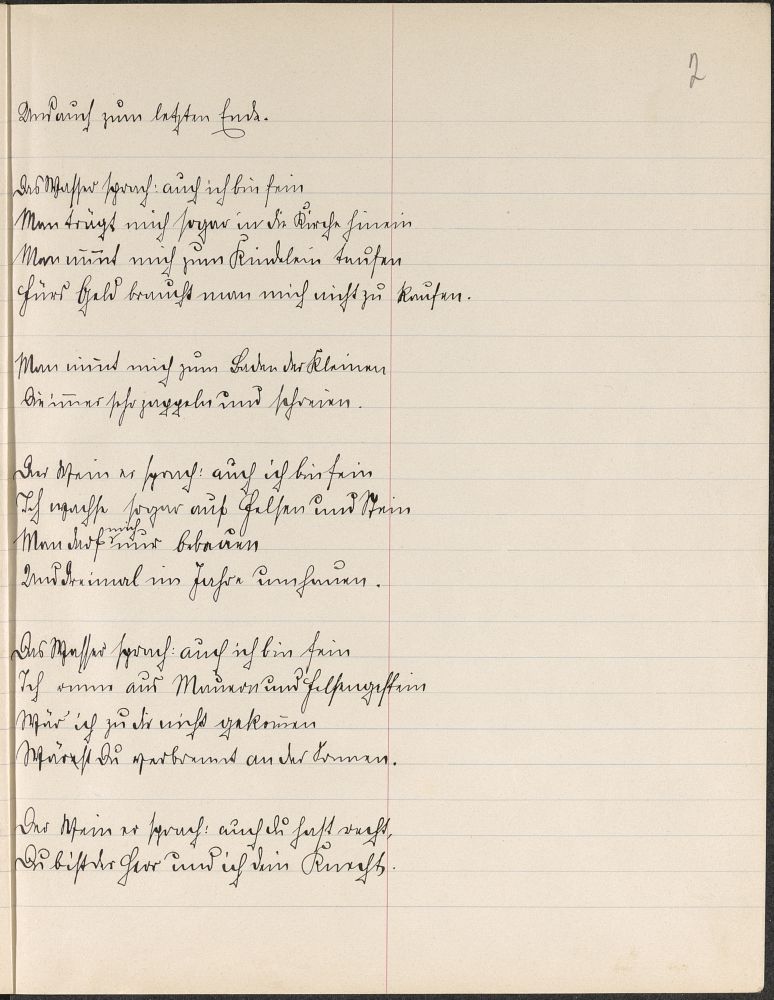 2
Und auch zum letzten Ende.
Das Wasser sprach: auch ich bin fein
Man trägt mich sogar in die Kirche hinein
Man nim̅t mich zum Kindelein taufen
Fürs Geld braucht man mich nicht zu kaufen.
Man nim̅t mich zum Baden der Kleinen
Die im̅er sehr zappeln und schreien.
Der Wein er sprach: auch ich bin fein
Ich wachse sogar auf Felsen und Stein
Man darf mich nur bebauen
Und dreimal im Jahre umhauen.
Das Wasser sprach: auch ich bin fein
Ich rinne aus Mauern und Felsengestein
Wär' ich zu dir nicht gekom̅en
Wärest Du verbrennt an der Sonnen.
Der Wein er sprach: auch du hast recht,
Du bist der Herr und ich dein Knecht.